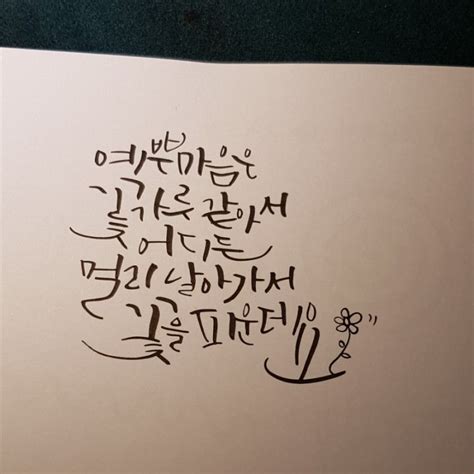 예쁜마음은
꽃가루 같아서
어디든
멀리 날아가서
꽃을 피운데요